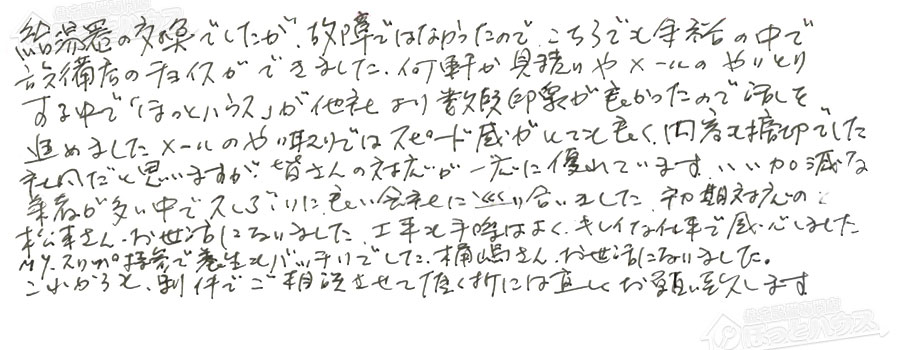 給湯器の交換でしたが、故障ではなかったので、こちらでも余裕の中で
設備店のチョイスができました。何軒か見積りやメールのやりとり
する中で「ほっとハウス」が他社より数段印象が良かったので話しを
進めましたメールのや取りではスピード感がとても良く、内容も適切でした
社風だと思いますが、皆さんの対応が一応に優れています。いい加減な
業者が多い中で久しぶりに良い会社に巡り合いました。初期対応の
松本さん、お世話になりました、工事も手際よく、キレイな仕事で感心しました
MY.スリッパ持参で養生もバッチリでした。桶嶋さん、お世話になりました。
これからも、別件でご相談させて頂く折には宜しくお願い致します
ほっとハウス